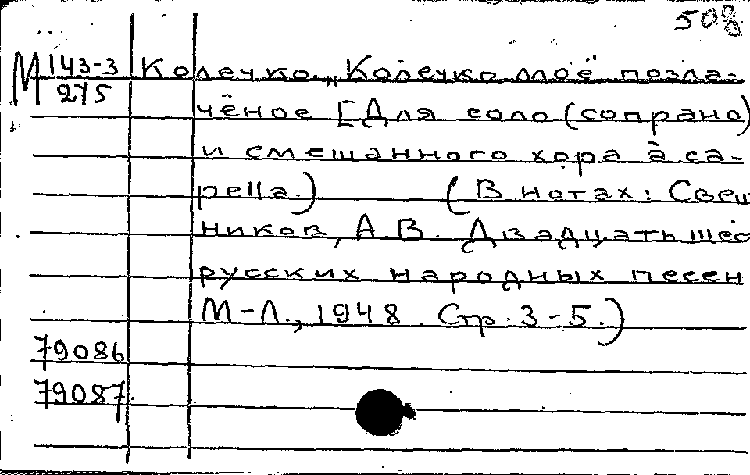 508
М 143-3 Колечко, Колечко моё позла-
275
чёное [Для соло (сопрано)
и смешанного хора à ca-
pella.) (В нотах: Свеш
ников, А В. Двадцать шес
русских народных песен
М-Л., 1948. Стр. 3-5.)
79086
79087